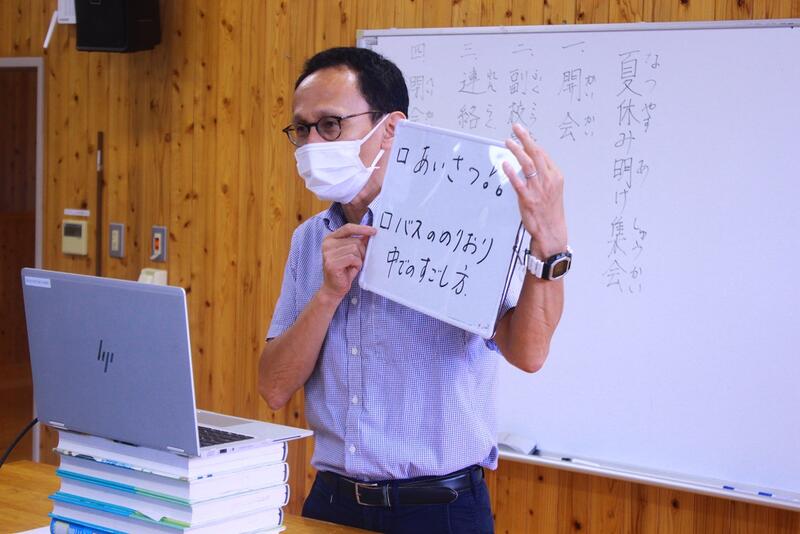 夏休み明け集会
なつやす あ しゅうかい
一、開会
かいかい
二、副校
ふくこう
三、連絡
四、閉会
□あいさつ
□バスののりおり
中でのすごし方.
hp